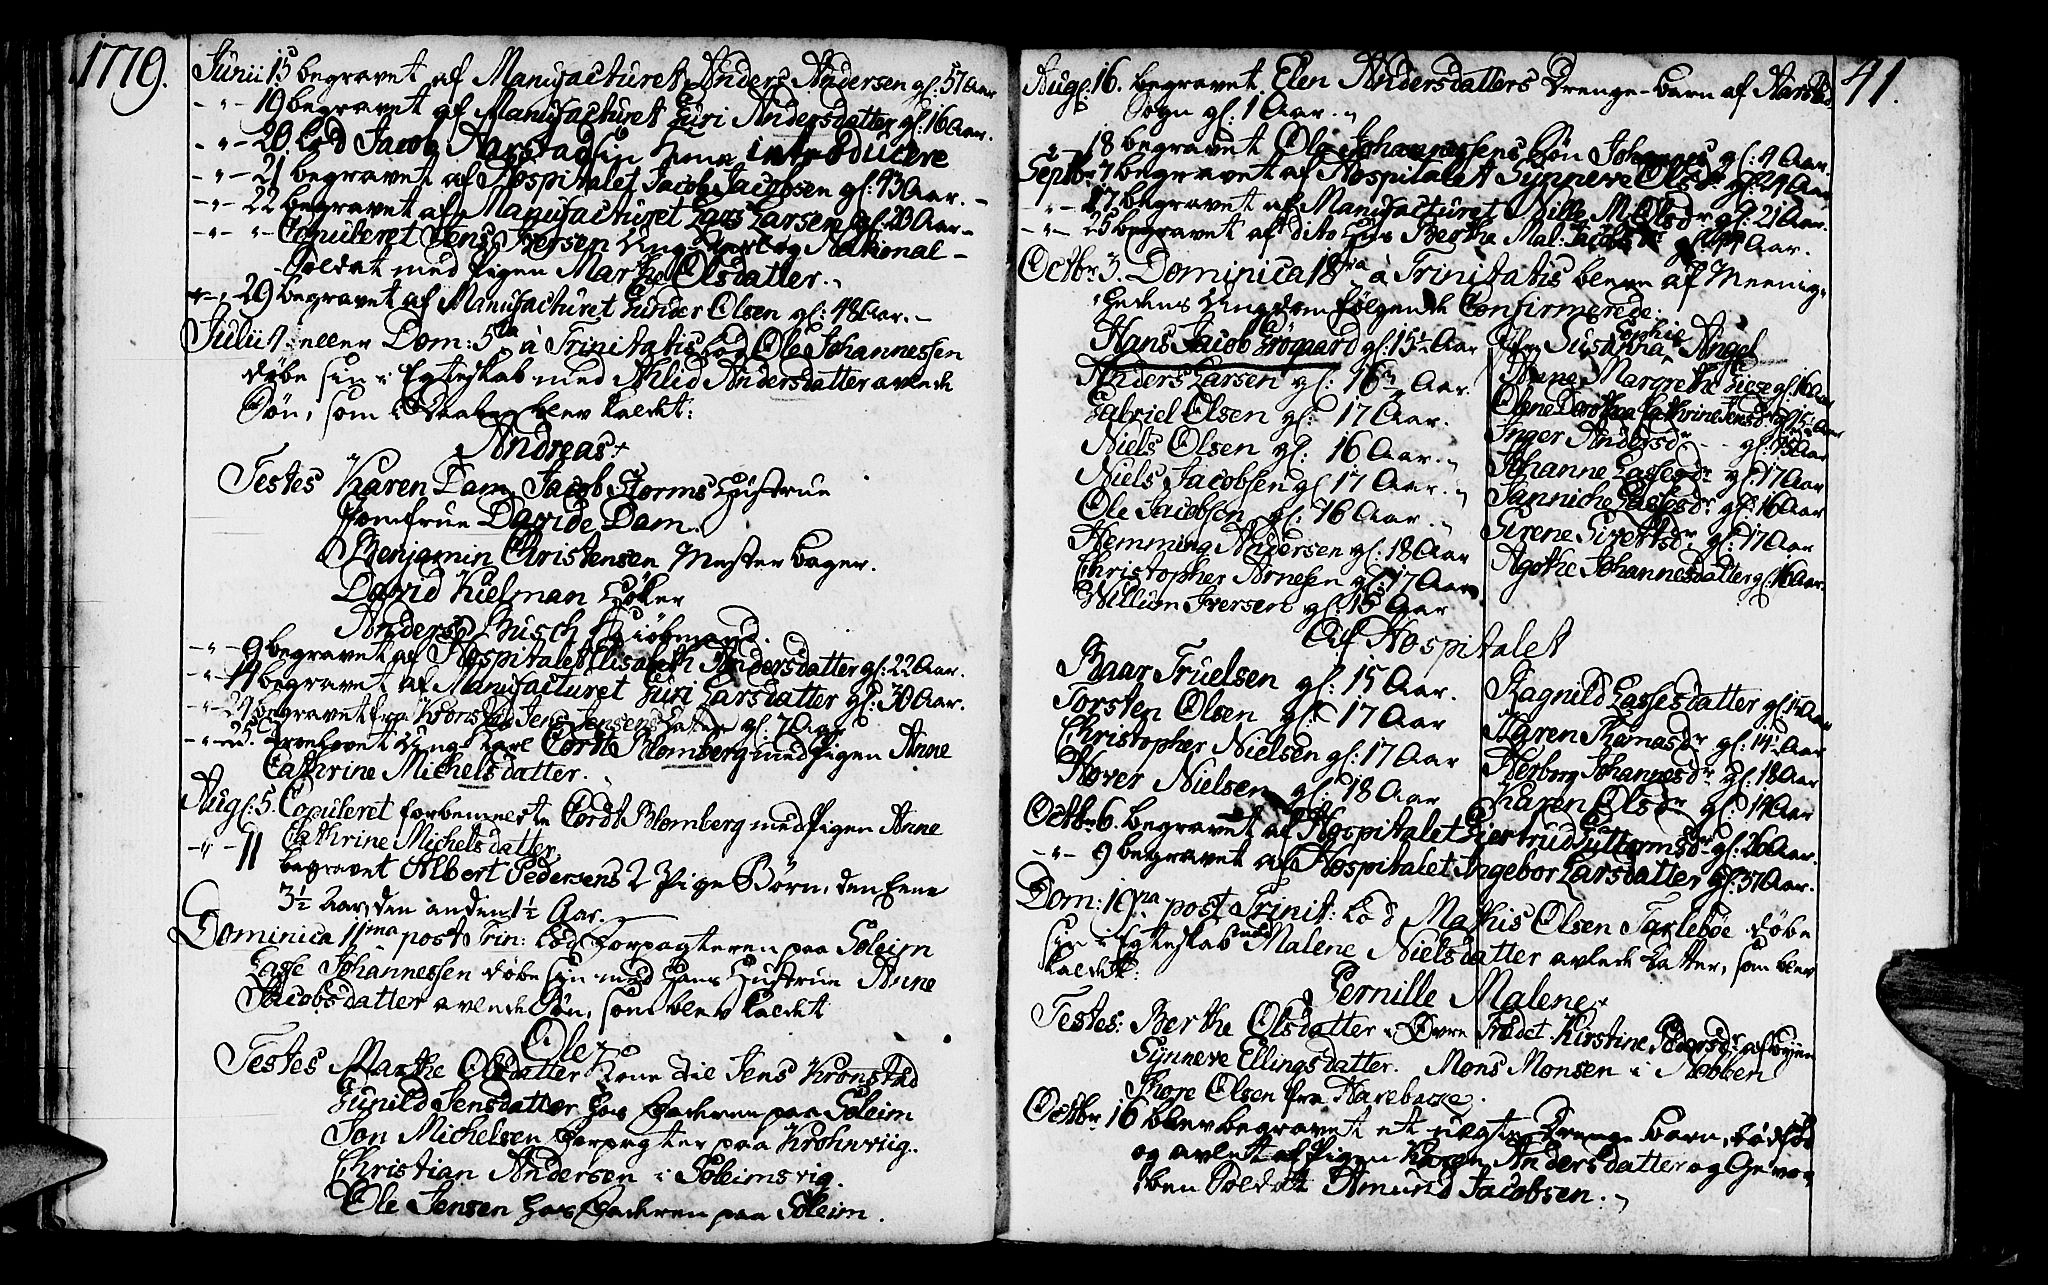 1779.
Junii 15 begravet af Manufacturet Anders Andersen gl: 57 Aar
- " - 19 begravet af Manufacturet Guri Andersdatter gl: 16 Aar.
- " - 20. Lod Jacob Aarstad sin Kone introducere
- " - 21 begravet af Hospitalet Jacob Jacobsen gl: 43 Aar. -
- " - 22 begravet af Manufacturet Lars Larsen gl: 20 Aar -
- " - " - Copuleret Jens Iversen Ung Karl og National -
Soldat med Pigen Marthe Olsdatter.
- " - 29 begravet af Manufacturet Gunder Olsen gl: 48 Aar. -
Julii eller Dom: 5ta à Trinitatis lod Ole Johannessen
døbe sin i Egteskab med Ahlid Andersdatter avlede
Søn, som i Daaben blev kaldt:
Andreas +
Testes Karen Dam, Jacob Storms Hustrue
Jomfrue Davide Dam.
Benjamin Christensen Mester bager.
David Kielman Høker
Anders Busch Kiøbmand.
- " - 9 begravet af Hospitalet Elisabeth Andersdatter gl: 22 Aar.
- " - 14 begravet af Manufacturet Guri Larsdatter gl: 30 Aar.
- " - begravet fra Kronstad Jens Jensens Datter gl: 7 Aar
- " - 25. Trolovet Ung Karl Cordt Blomberg med Pigen Anne
Cathrine Michelsdatter.
Augs: 5. Copuleret forbemeldte Cordt Blomberg med Pigen Anne
Cathrine Michelsdatter
- " - 11 begravet Albert Pedersens 2 Pige Børn, den Eene
3½ Aar, den anden 1½ Aar.
Dominica 11ma post Trin: lod Forpagteren paa Soleim
Lasse Johannessen døbe sin med hans Hustrue Anne
Jacobsdatter avlede Søn, som blev kaldt
Ole +
Testes Marthe Olsdatter Kone til Jens Kronstad
Gunild Jensdatter hos Faderen paa Soleim
Jon Michelsen Forpagter paa Krohnviig.
Christian Andersen i Soleimsvig.
Ole Jensen hos Faderen paa Soleim.
41.
Augs: 16. begravet Elen Andersdatters Drenge-barn af Aarstad
Sogn gl: 1 Aar.
- " - 18 begravet Ole Johannessens Søn Johannes gl: 4 Aar.
Septbr 7 begravet af Hospitalet Synneve Olsdr gl: Aar
- " - 17 begravet af Manufacturet Nille M. Olsdr gl: 21 Aar.
- " - 25 begravet af dito Berthe Mal: Jacobsdr gl: Aar.
Octbr 3. Dominica 18va à Trinitatis bleve af Meenig-
hedens Ungdom følgende Confirmerede:
Hans Jacob Frögaard gl: 15½ Aar
Anders Larsen gl: 16½ Aar.
Gabriel Olsen gl: 17 Aar.
Niels Olsen gl: 16 Aar.
Niels Jacobsen gl 17 Aar.
Ole Jacobsen gl: 16 Aar.
Hemming Andersen gl: 18 Aar
Christopher Arnesen gl: 17 Aar
Willum Iversen gl: 15 Aar
Jfr Susanna Sophie Angel
Anne Margrethe gl: 16 Aar
Olene Dorothea Cathrine Jensdr gl: 15½ Aar
Inger Andersdr - - gl: 15 Aar
Johanne Lassesdr gl: 17 Aar
Janniche Lassesdr gl: 16 Aar
Sirene Sivertsdr gl: 17 Aar
Agothe Johannesdatter gl: 16 Aar.
Af Hospitalet
Baar Truelsen gl: 15 Aar.
Torsten Olsen gl: 17 Aar
Christopher Nielsen gl: 17 Aar
Hover Nielsen gl: 18 Aar
Ragnild Lassesdatter gl: 15 Aar
Karen Thomasdr gl: 14½ Aar
Herborg Johannesdr gl: 18 Aar
Karen Olsdr gl: 19 Aar
Octbr 6. begravet af Hospitalet Giertrud Guttormsdr gl: 26 Aar.
- " - 9 begravet af Hospitalet Ingebor Larsdatter gl: 37 Aar.
Dom: 19na post Trinit: lod Mathis Olsen Tarlebøe døbe
sin i Egteskab med Malene Nielsdatter avlede Datter, som blev
kaldt:
Pernille Malene +
Testes: Berthe Olsdatter i Øvre Kirstine Pedersdr
Synneve Ellingsdatter. Mons Monsen i Nobben
Thore Olsen fra Harebacke.
Octbr 16 blev begravet et uægte Drenge barn, dødfød
og avlet af Pigen Karen Andersdatter og Gevor-
ben Soldat Amund Jacobsen.